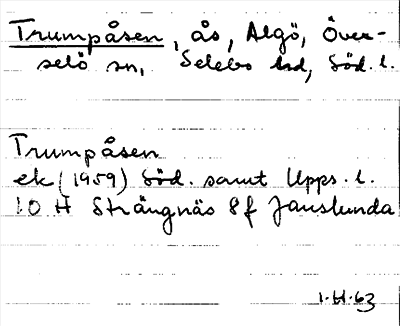 Trumpåsen, ås, Algö, Över-
selö sn, Selebo hd, Söd. l.
Trumpåsen
ek (1959) Söd. samt Upps. l.
10 H Strängnäs 8f Janslunda
1.H.63